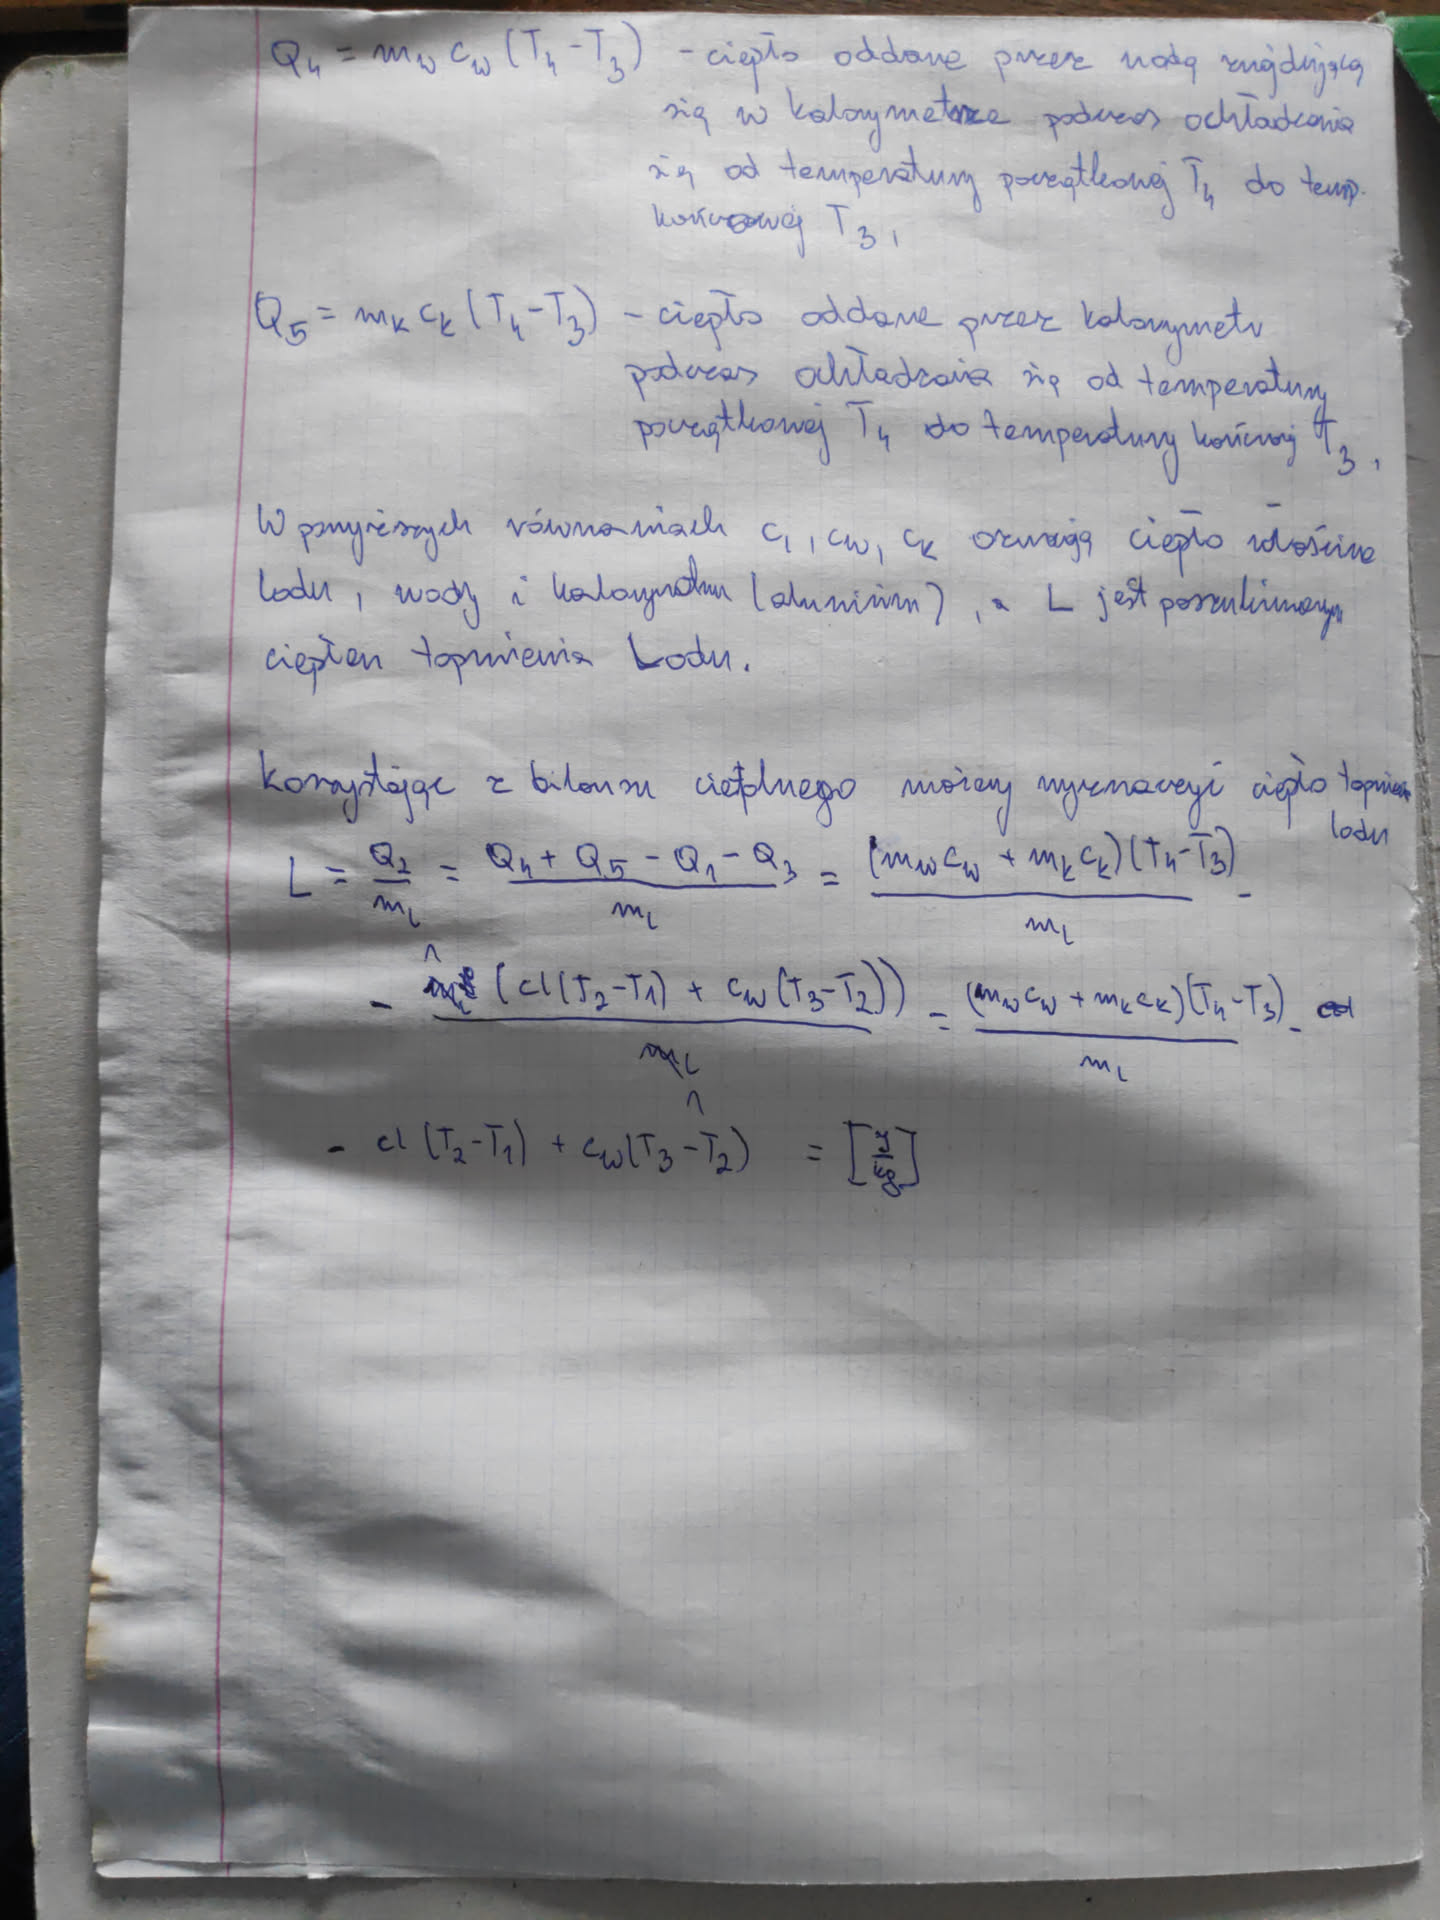 Q₄ = m_w c_w (T₄ - T₃) - ciepło oddane przez wodę znajdującą
się w kalorymetrze podczas ochładzania
się od temperatury początkowej T₄ do temp.
końcowej T₃,
Q₅ = m_k c_k (T₄ - T₃) - ciepło oddane przez kalorymetr
podczas ochładzania się od temperatury
początkowej T₄ do temperatury końcowej T₃,
W powyższych równaniach c_l, c_w, c_k oznaczają ciepło właściwe
lodu, wody i kalorymetru (aluminium), a L jest poszukiwanym
ciepłem topnienia Lodu.
Korzystając z bilansu cieplnego możemy wyznaczyć ciepło topnien
lodu
L = Q₂/m_L = (Q₄ + Q₅ - Q₁ - Q₃)/m_L = (m_w c_w + m_k c_k)(T₄ - T₃)/m_L -
- m_L (cl(T₂ - T₁) + c_w (T₃ - T₂))/m_L = (m_w c_w + m_k c_k)(T₄ - T₃)/m_L -
- cl (T₂ - T₁) + c_w (T₃ - T₂) = [J/kg]